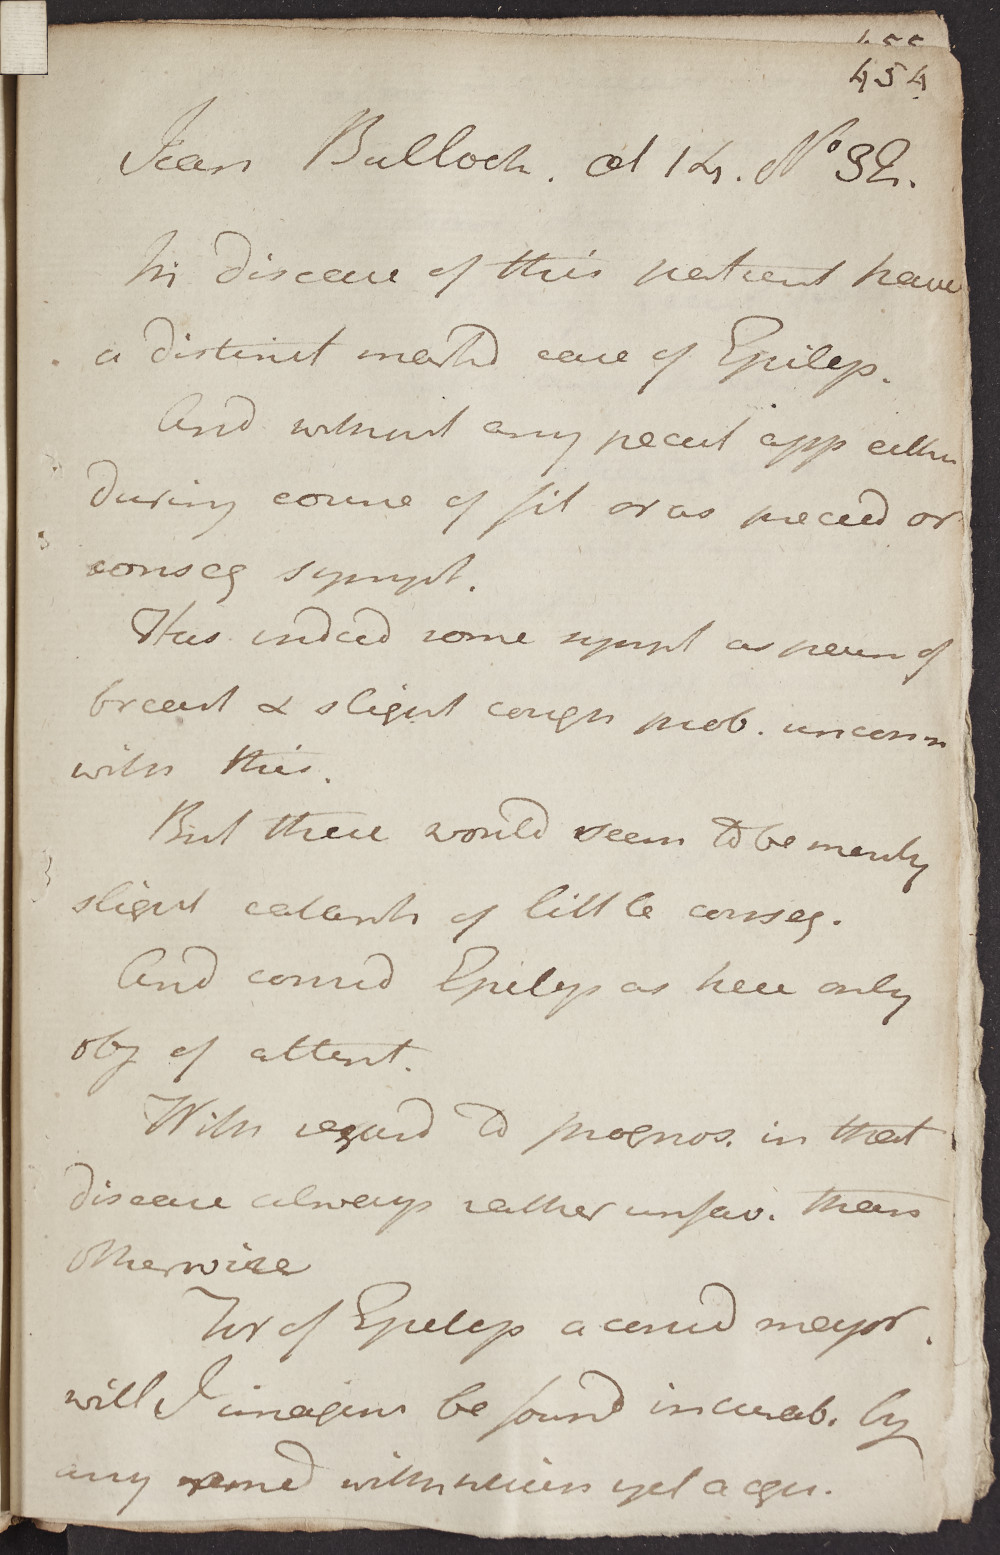 454
Jean Bulloch. æt 14. No 32.
In disease of this patient have
a distinct markd case of Epilep.
And without any pecul app either
during course of fit or as preced or
conseq sympt.
Has indeed some sympt as pain of
breast & slight cough prob. unconn
with this.
But these would seem to be merely
slight catarrh of little conseq.
And consid Epilep as here only
obj of attent.
With regard to prognos. in that
disease always rather unfav. than
otherwise
For of Epilep a consid major.
will I imagine be found incurab. by
any remed with which yet acqu.